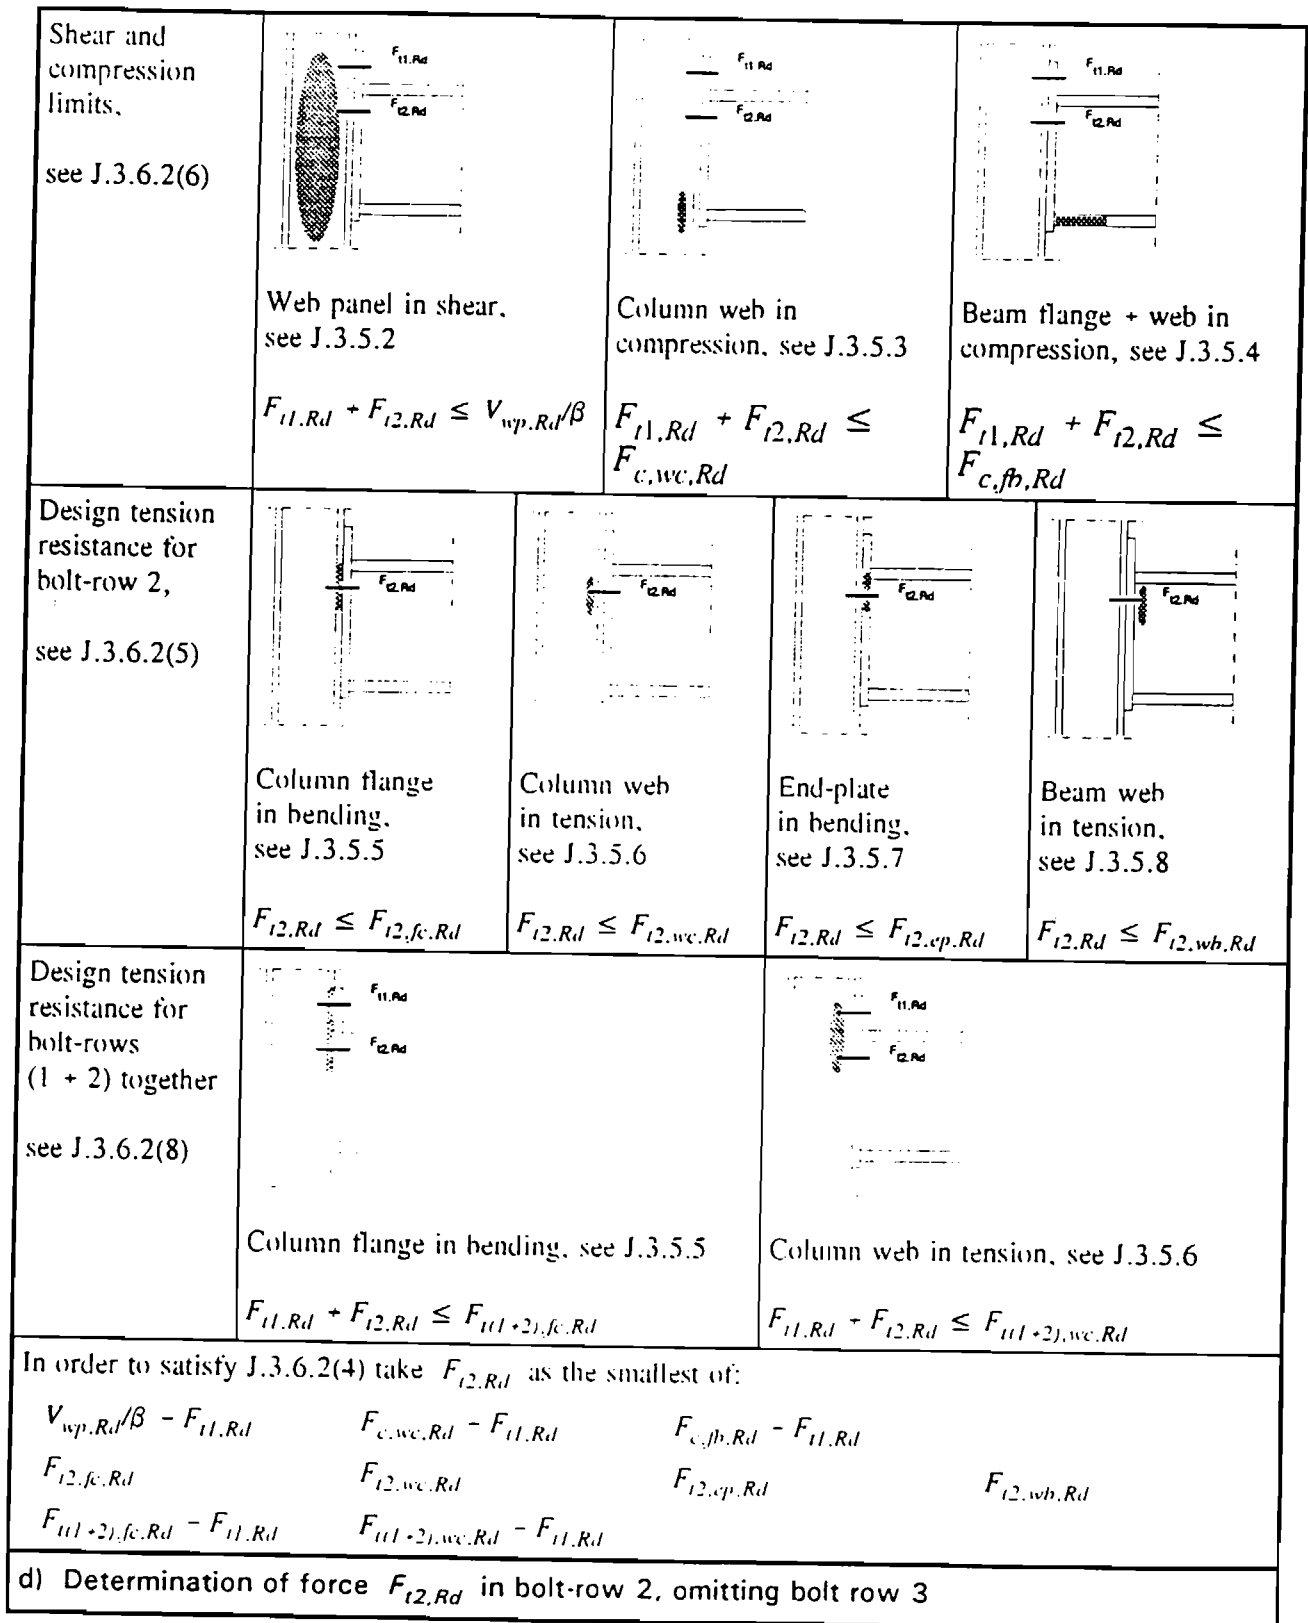 Shear and
compression
limits,
see J.3.6.2(6)
F_{t1.Rd}
F_{t2.Rd}
Web panel in shear,
see J.3.5.2
F_{t1.Rd} + F_{t2.Rd} ≤ V_{wp.Rd}/β
F_{t1.Rd}
F_{t2.Rd}
Column web in
compression, see J.3.5.3
F_{t1,Rd} + F_{t2,Rd} ≤
F_{c,wc,Rd}
F_{t1.Rd}
F_{t2.Rd}
Beam flange + web in
compression, see J.3.5.4
F_{t1,Rd} + F_{t2,Rd} ≤
F_{c,fb,Rd}
Design tension
resistance for
bolt-row 2,
see J.3.6.2(5)
F_{t2.Rd}
Column flange
in bending,
see J.3.5.5
F_{t2.Rd} ≤ F_{t2.fc.Rd}
F_{t2.Rd}
Column web
in tension,
see J.3.5.6
F_{t2.Rd} ≤ F_{t2.wc.Rd}
F_{t2.Rd}
End-plate
in bending,
see J.3.5.7
F_{t2.Rd} ≤ F_{t2.ep.Rd}
F_{t2.Rd}
Beam web
in tension,
see J.3.5.8
F_{t2.Rd} ≤ F_{t2.wb.Rd}
Design tension
resistance for
bolt-rows
(1 + 2) together
see J.3.6.2(8)
F_{t1.Rd}
F_{t2.Rd}
Column flange in bending, see J.3.5.5
F_{t1.Rd} + F_{t2.Rd} ≤ F_{t(1+2).fc.Rd}
F_{t1.Rd}
F_{t2.Rd}
Column web in tension, see J.3.5.6
F_{t1.Rd} + F_{t2.Rd} ≤ F_{t(1+2).wc.Rd}
In order to satisfy J.3.6.2(4) take F_{t2.Rd} as the smallest of:
V_{wp.Rd}/β - F_{t1.Rd} F_{c.wc.Rd} - F_{t1.Rd} F_{c.fb.Rd} - F_{t1.Rd}
F_{t2.fc.Rd} F_{t2.wc.Rd} F_{t2.ep.Rd} F_{t2.wb.Rd}
F_{t(1+2).fc.Rd} - F_{t1.Rd} F_{t(1+2).wc.Rd} - F_{t1.Rd}
d) Determination of force F_{t2,Rd} in bolt-row 2, omitting bolt row 3